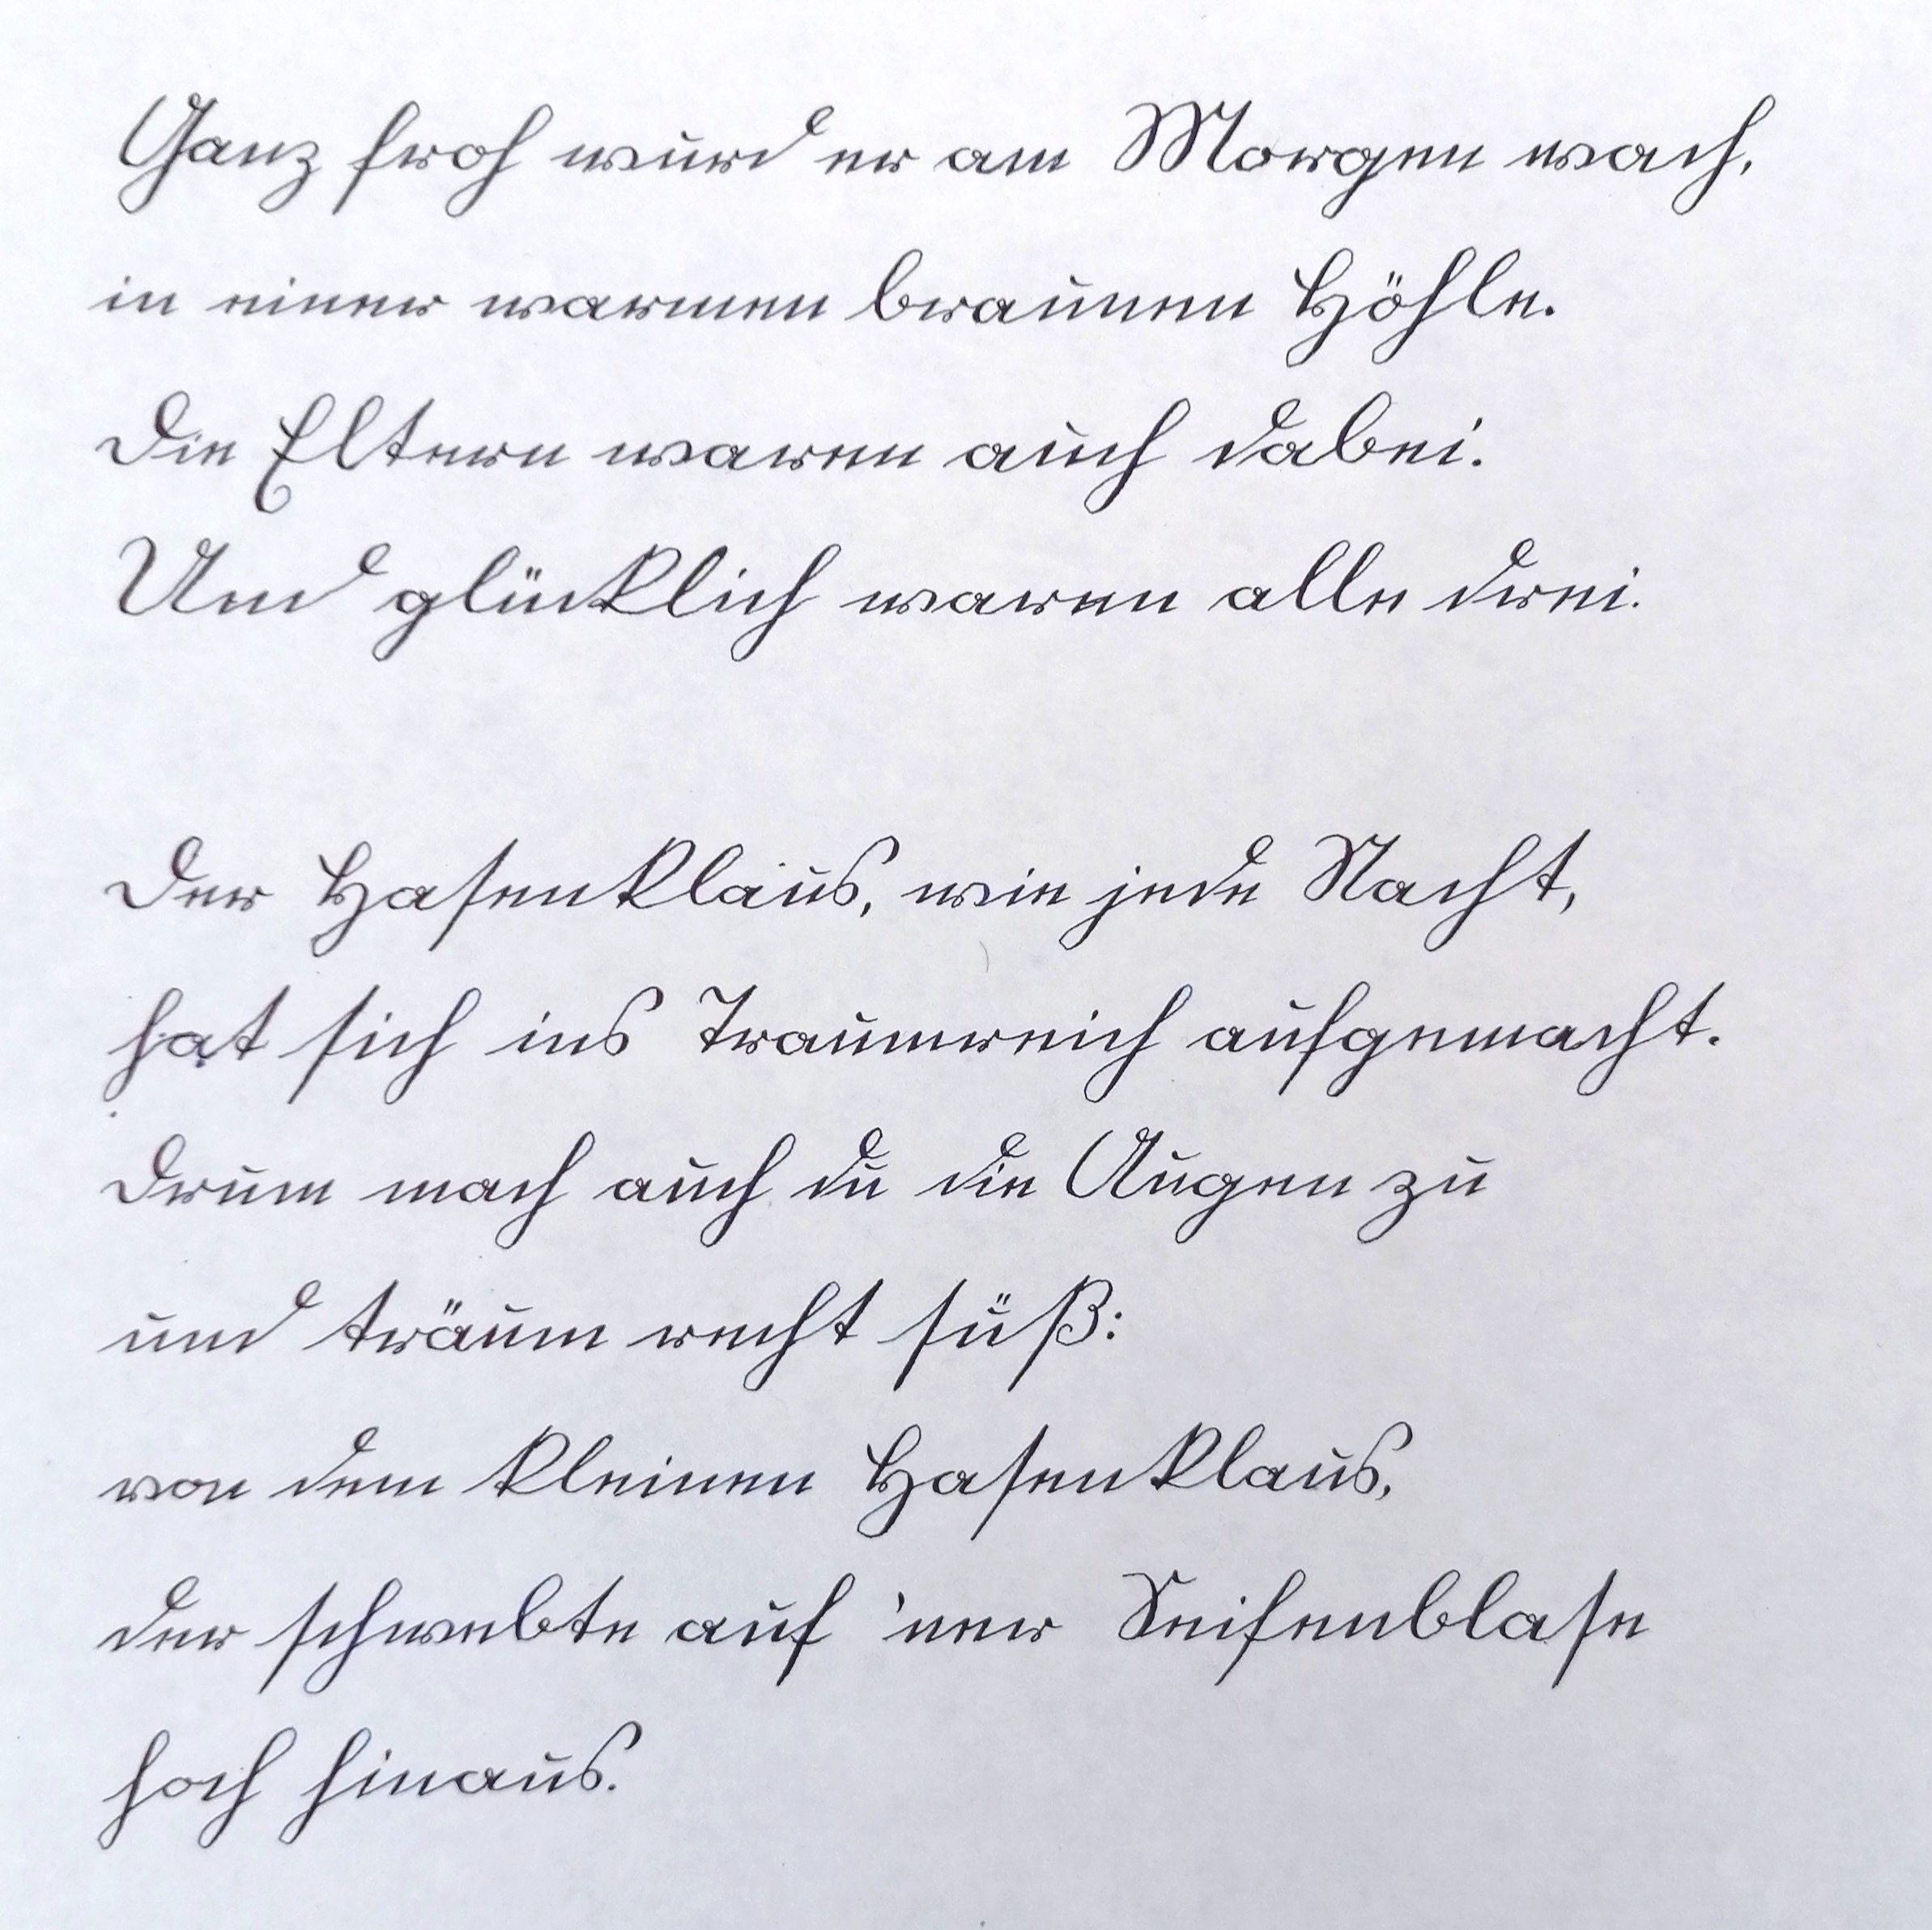 Ganz froh wurd er am Morgen wach,
in einer warmen braunen Höhle.
Die Eltern waren auch dabei.
Und glücklich waren alle drei.
Der Hasenklaus, wie jede Nacht,
hat sich ins Traumreich aufgemacht.
Drum mach auch du die Augen zu
und träum recht süß:
von dem kleinen Hasenklaus,
der schwebte auf 'ner Seifenblase
hoch hinaus.